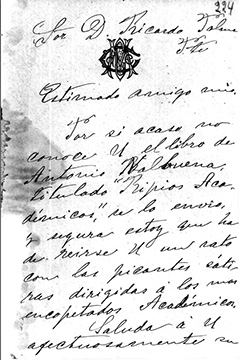 224
Sor D. Ricardo Palma
Pte
Estimado amigo mio:
Por si acaso no
conoce U el libro de
Antonio Valbuena,
titulado "Ripios Aca-
démicos," se lo envio,
y segura estoy que ha
de reirse U un rato
con las picantes sáti-
ras dirigidas á los mas
encopetados Académicos.
Saluda á U
afectuosamente su